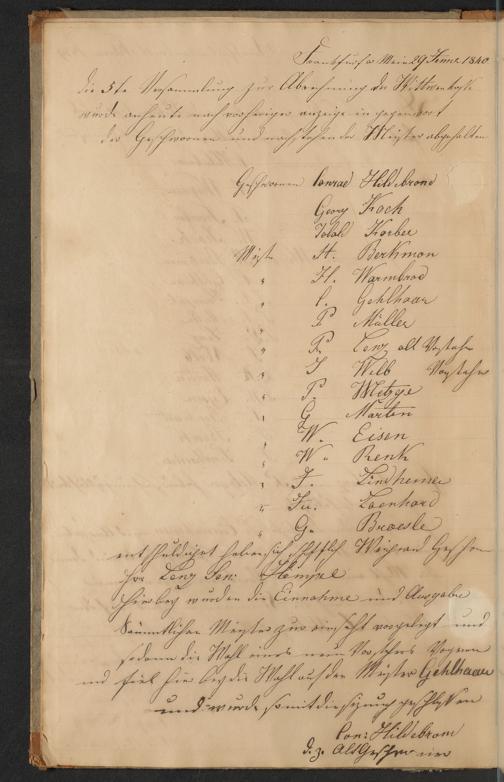 Frankfurt a Main 29 Januar 1840
die 5te Versammlung zur Abrechnung der Wittwenkasse
wurde anheute nach vorheriger anzeige in gegenwart
der Geschwornen und nachstehender Meister abgehalten
Geschwornen Conrad Hildebrand
Georg Koch
Jakob Korber
Mstr H. Berkman
" H. Warmbrod
" C. Gehlhaar
" P Müller
" P. Lenz alt Vorsteher
" J Welb Vorsteher
" P. Metzge
" G Martin
" W. Eisen
" W. Renk
" F. Lindheimer
" Fr. Leonhard
" G. Braesle
entschuldigt haben sich schriftlich
Lenz Sen: Stempel
Hierbey wurden die Einnahme und Ausgabe
Sämmtlichen Meister zur einsicht vorgelegt und
sodann die Wahl eines neuen Vorstehers
und fiel die Wahl auf den Meister Gehlhaar
und wurde somit die sizung geschlossen
Con: Hildebrand
d. z. Alt Geschworner